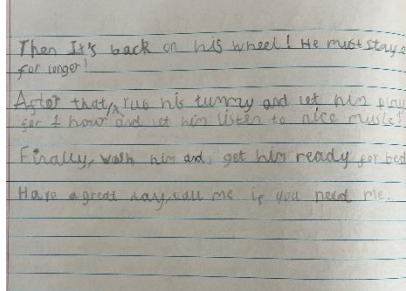 Then It's back on his wheel! He must stay
for longer!
After that, rub his tummy and let him play
for 1 hour and let him listen to nice music!
Finally, wash him and get him ready for bed
Have a great day, call me if you need me.